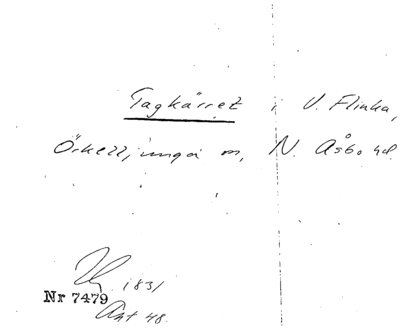 Tagkärret i V. Flinka,
Örkelljunga sn, N. Åsbo hd.
1831
Nr 7479
Akt 48.